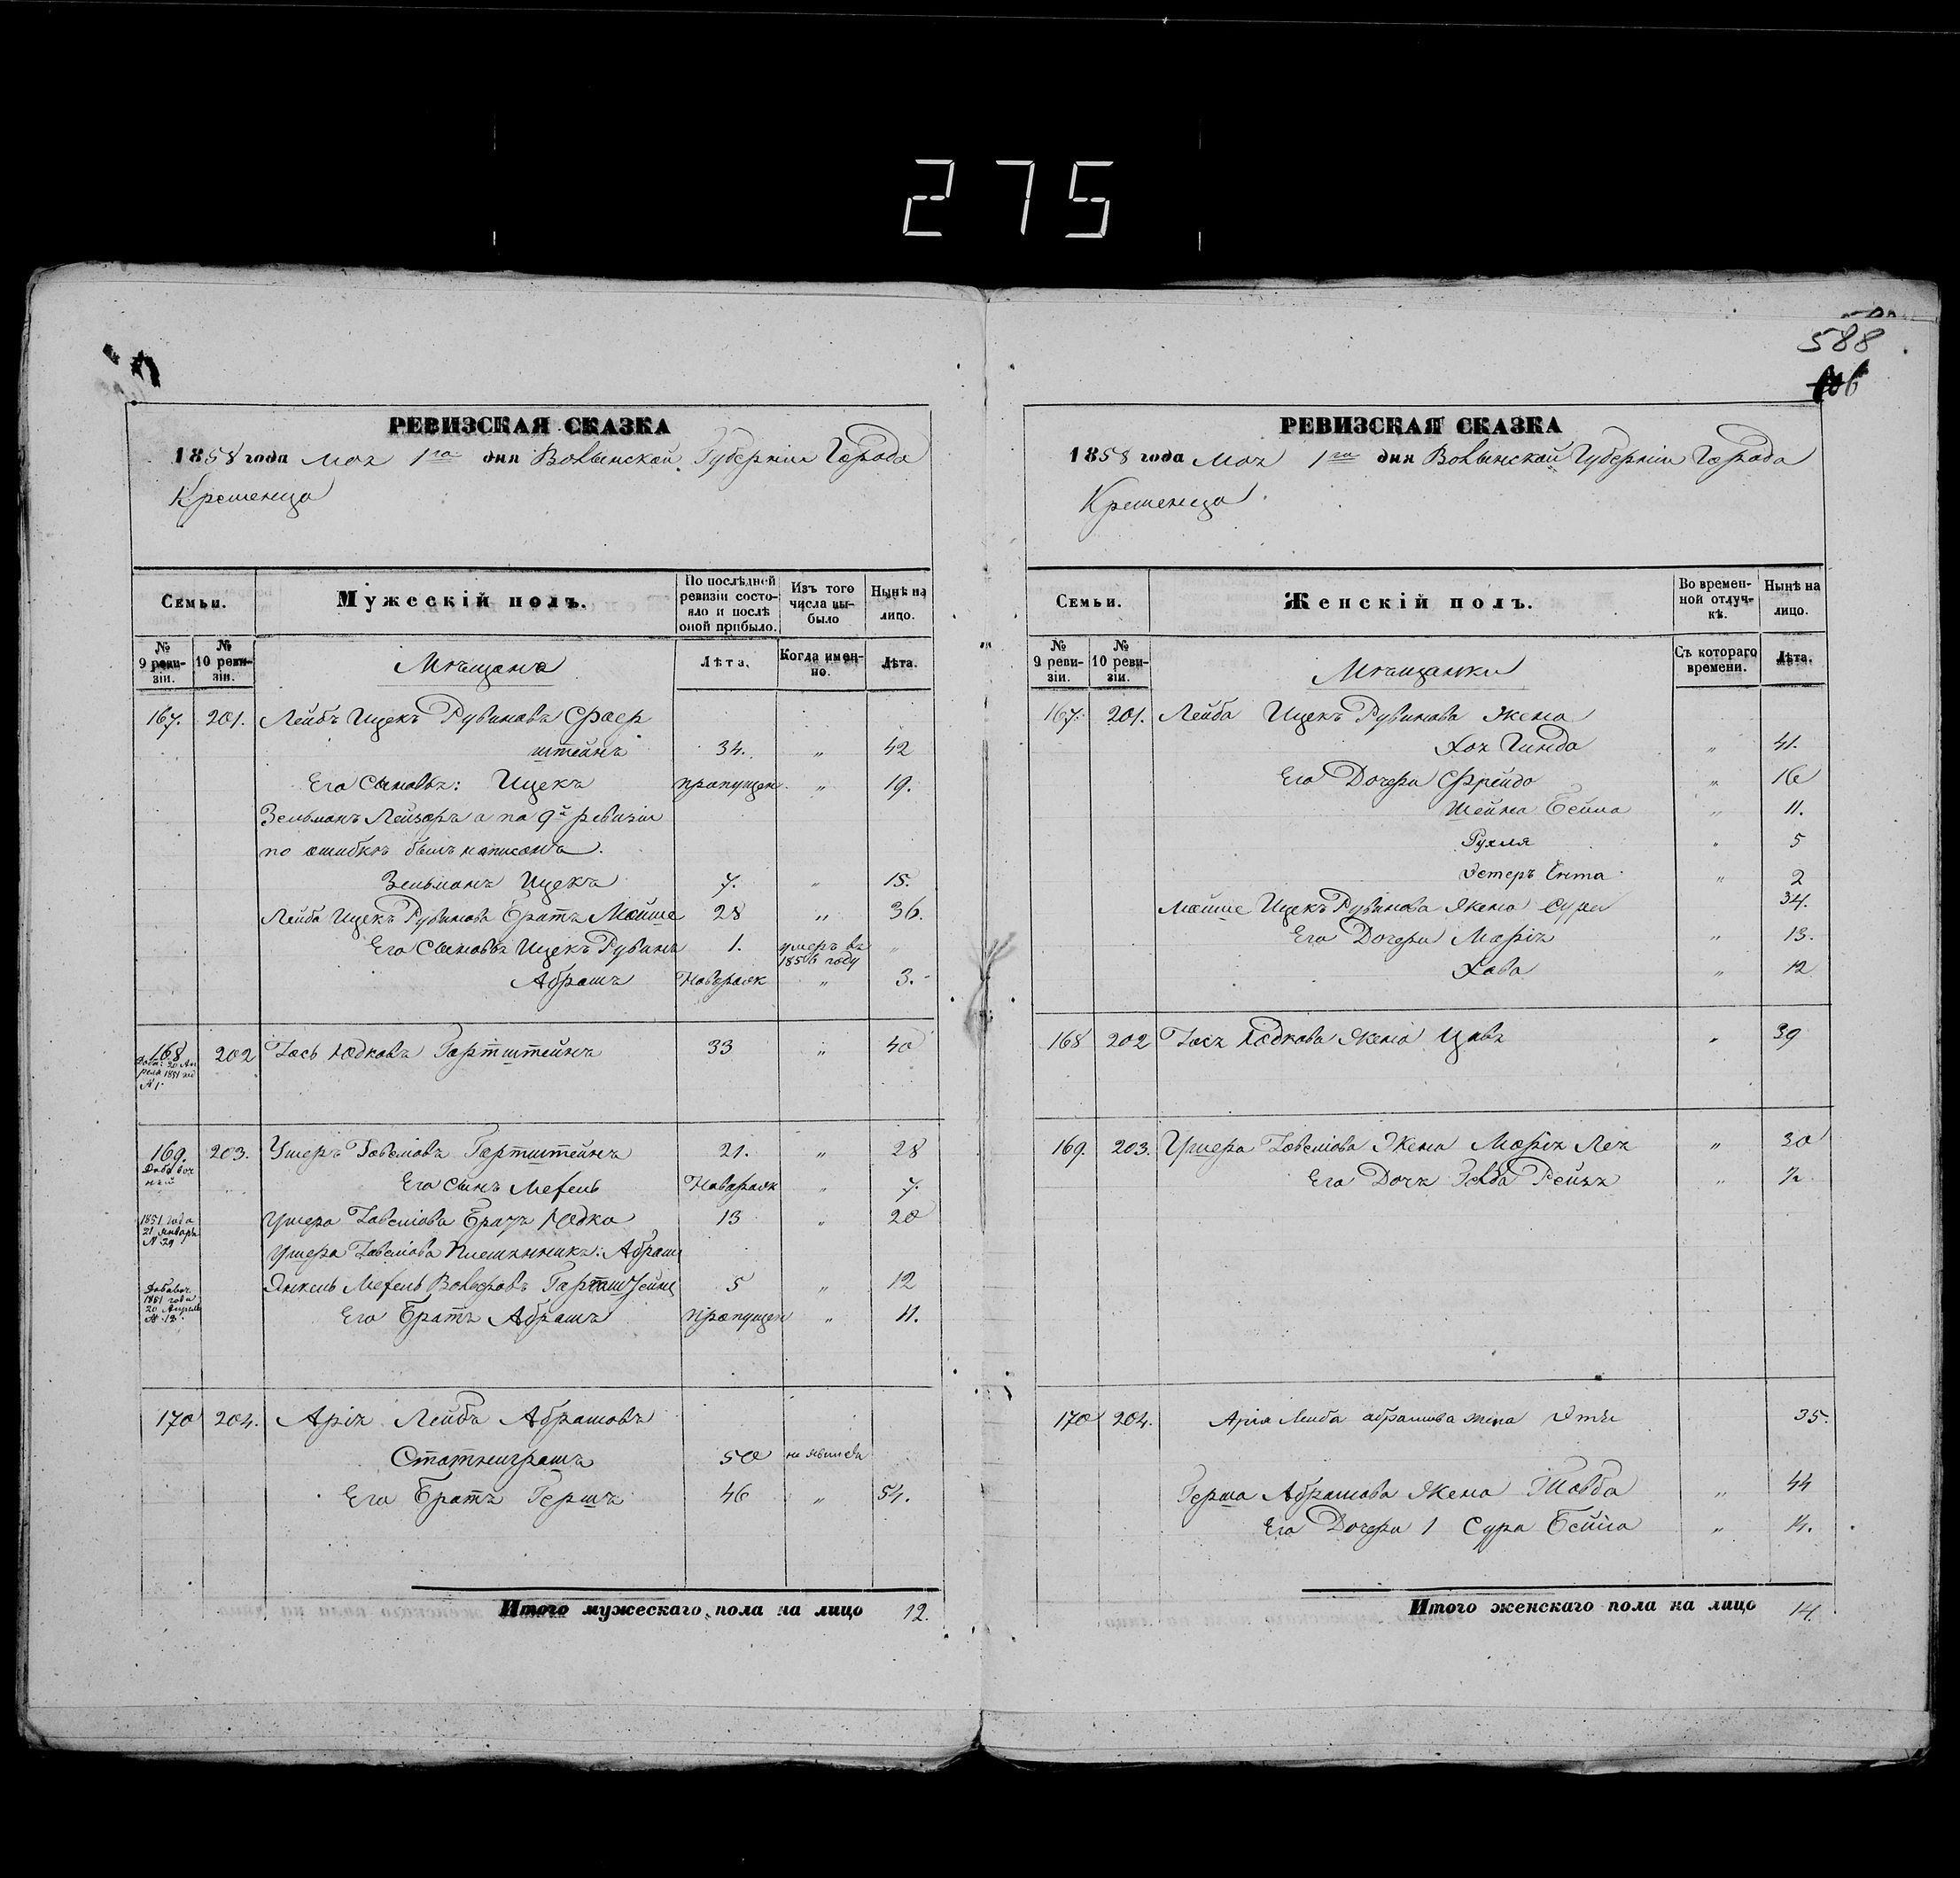 275
588
РЕВИЗСКАЯ СКАЗКА
1858 года мая 1го дня Волынской Губерніи Города
Кременца
Семьи.
Мужескій полъ.
По послѣдней ревизіи состояло и послѣ оной прибыло.
Изъ того числа выбыло
Нынѣ на лицо.
№ 9 ревизіи.
№ 10 ревизіи.
Мѣщане
Лѣта.
Когда именно.
Лѣта.
167. 201. Лейбъ Ицекъ Рувиновъ Фаер
штейнъ 34. „ 42
Его Сыновья: Ицекъ пропущен „ 19.
Зельманъ Лейзоръ а по 9й ревизіи
по ошибкѣ былъ написанъ.
Зельманъ Ицекъ 7. „ 15.
Лейба Ицекъ Рувинова Братъ Мойше 28 „ 36.
Его Сыновья Ицекъ Рувинъ 1. умеръ въ 1856 году „
Абрамъ Новорожд „ 3.
168 202 Іось Юдковъ Гартштейнъ 33 „ 40
№ 1
169. 203. Ушеръ Іовелювъ Гартштейнъ 21. „ 28
Его сынъ Мехель Новорож „ 7.
1851 года 21 января № 29
Ушера Іовелюва Братъ Юдко 13 „ 20
Ушера Іовелюва Племянникъ: Абрам
Добавоч. 1851 года 20 Апреля № 13
Янкель Мехель Вольфовъ Гартштейнъ 5 „ 12
Его Братъ Абрамъ пропущен „ 11.
170 204. Арія Лейбъ Абрамовъ
50 не явился
Его Братъ Гершъ 46 „ 54.
Итого мужескаго пола на лицо 12.
РЕВИЗСКАЯ СКАЗКА
1858 года мая 1го дня Волынской Губерніи Города
Кременца
Семьи.
Женскій полъ.
Во временной отлучкѣ.
Нынѣ на лицо.
№ 9 ревизіи.
№ 10 ревизіи.
Мѣщанки
Съ котораго времени.
Лѣта.
167. 201. Лейба Ицекъ Рувинова жена
Хая Гинда „ 41.
Его Дочери Фрейда „ 16
Шейна Бейла „ 11.
Рухля „ 5
Эстеръ Ента „ 2
Мойше Ицекъ Рувинова Жена Сура 34.
Его Дочери Марія „ 13.
Хава „ 12
168 202 Іося Юдкова Жена Цивя „ 39
169. 203. Ушера Іовелюва Жена Марія Лея „ 30
Его Дочь Зелда Рейзя „ ½
170 204. Арія Лейба абрамова жена 35.
Герша Абрамова Жена Товба „ 44
Его Дочери 1 Сура Бейла „ 14.
Итого женскаго пола на лицо 14.